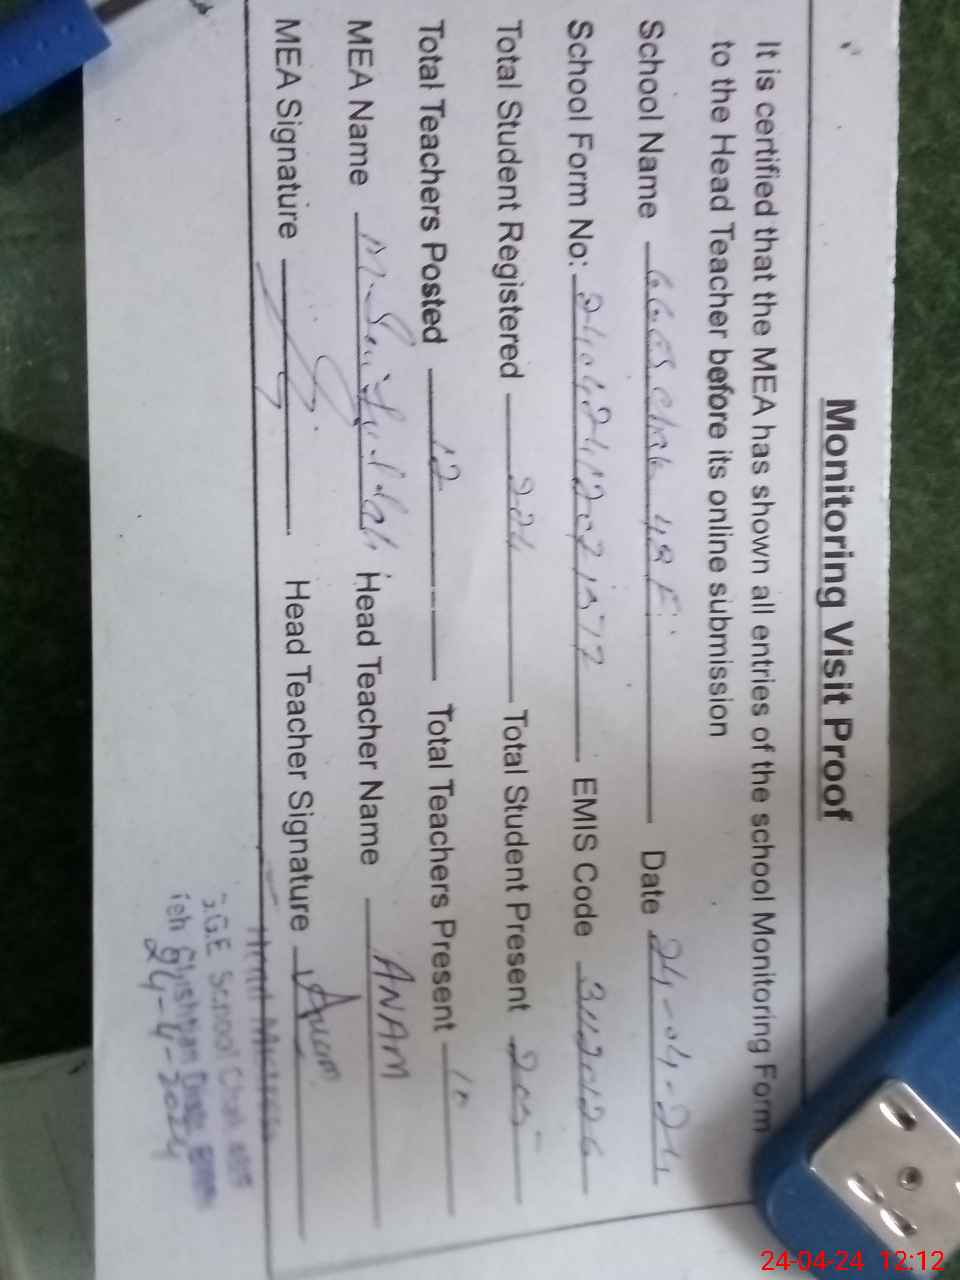 Monitoring Visit Proof
It is certified that the MEA has shown all entries of the school Monitoring Form
to the Head Teacher before its online submission
School Name GGES Chak 48 F Date 24-04-24
School Form No: EMIS Code
Total Student Registered 224 Total Student Present 205
Total Teachers Posted 12 Total Teachers Present 10
MEA Name Head Teacher Name ANAM
MEA Signature Head Teacher Signature Anam
Head
School Chak
24-4-2024
24-04-24 12:12